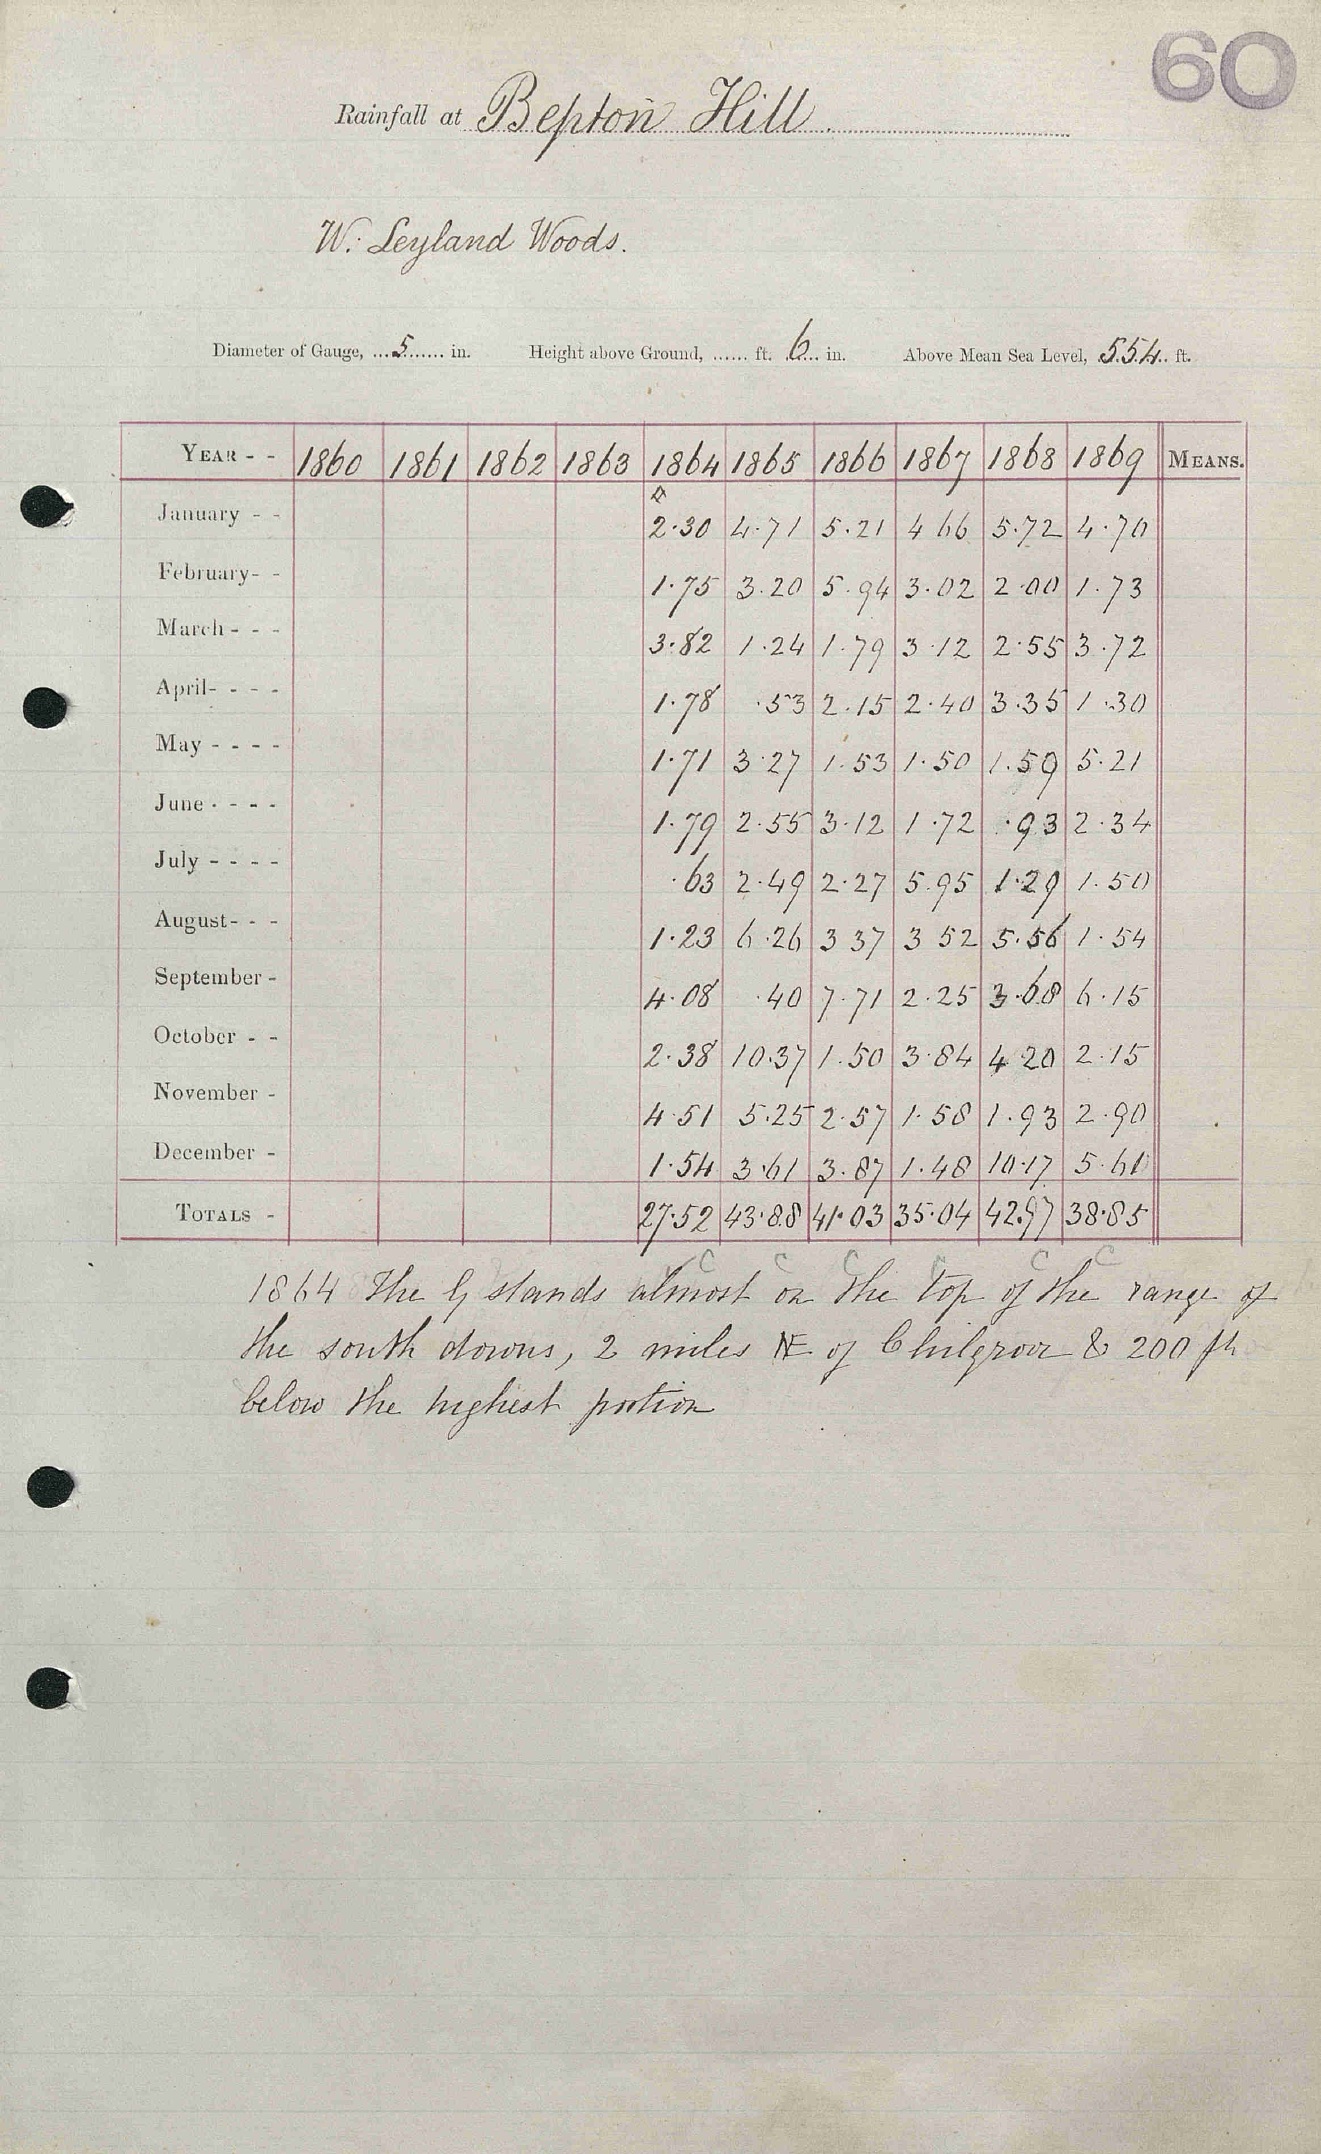 60
Rainfall at Bepton Hill.
W. Leyland Woods.
Diameter of Gauge, ...5...... in. Height above Ground, ...... ft. 6... in. Above Mean Sea Level, 554.. ft.
YEAR - - 1860 1861 1862 1863 1864 1865 1866 1867 1868 1869 MEANS.
January - - 2.30 4.71 5.21 4 66 5.72 4.70
February- - 1.75 3.20 5.94 3.02 2.00 1.73
March - - - 3.82 1.24 1.79 3.12 2.55 3.72
April- - - - 1.78 .53 2.15 2.40 3.35 1.30
May - - - - 1.71 3.27 1.53 1.50 1.59 5.21
June - - - - 1.79 2.55 3.12 1.72 .93 2.34
July - - - - .63 2.49 2.27 5.95 1.29 1.50
August- - - 1.23 6.26 3 37 3 52 5.56 1.54
September - 4.08 .40 7.71 2.25 3.68 6.15
October - - 2.38 10.37 1.50 3.84 4.20 2.15
November - 4.51 5.25 2.57 1.58 1.93 2.90
December - 1.54 3.61 3.87 1.48 10.17 5.61
TOTALS - 27.52 43.88 41.03 35.04 42.97 38.85
C C C C C C
1864 The G stands almost on the top of the range of
the south downs, 2 miles NE of Chilgrove & 200 ft
below the highest portion